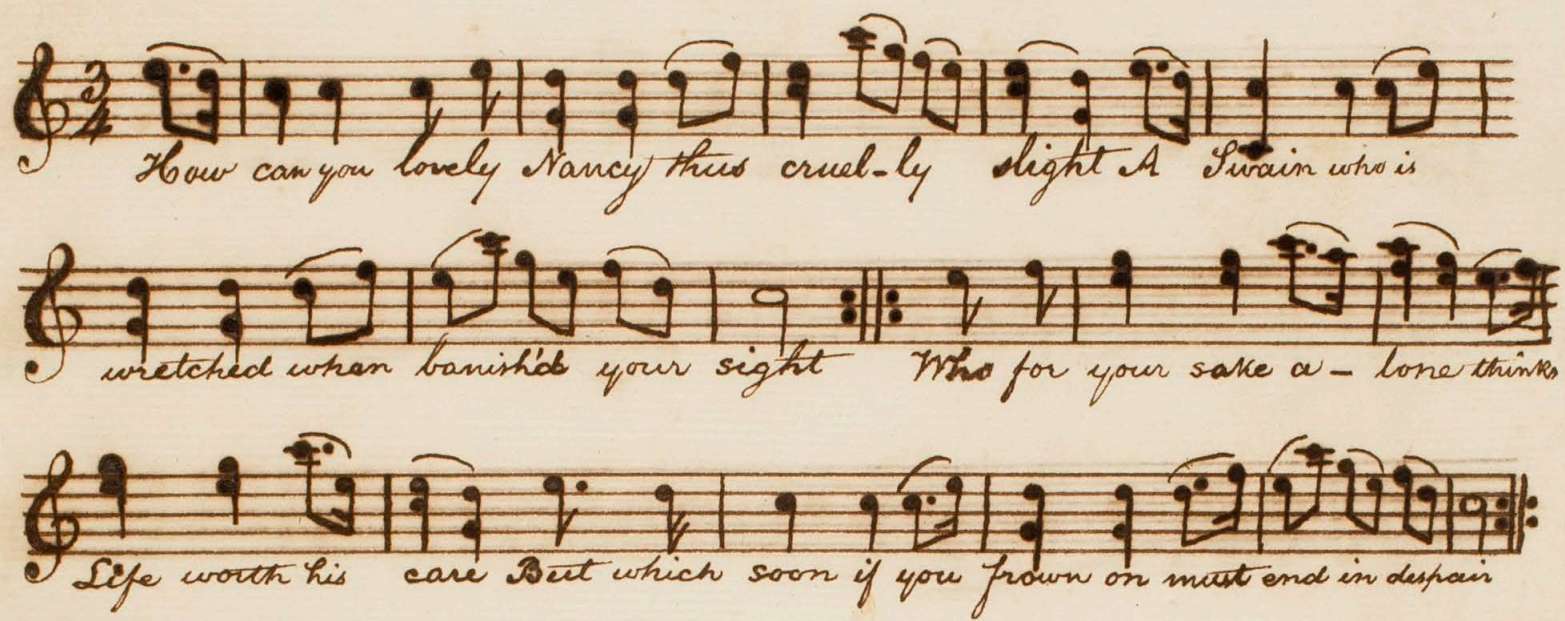 How can you lovely Nancy thus cruel-ly slight A Swain who is
wretched when banish'd your sight Who for your sake a - lone thinks
Life worth his care But which soon if you frown on must end in despair